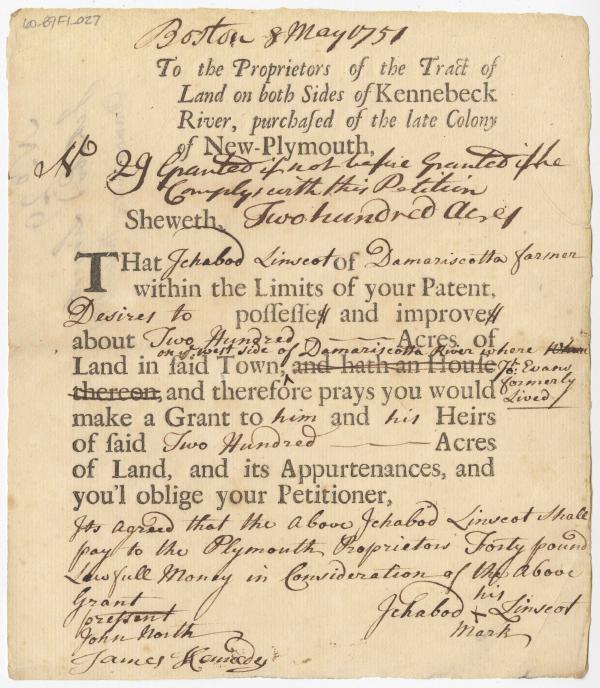 60-89F1_027
Boston 8 May 1751
To the Proprietors of the Tract of
Land on both Sides of Kennebeck
River, purchased of the late Colony
of New-Plymouth,
No 29 Granted if not before Granted if he
Complys with this Petition
Sheweth, Two hundred Acres
THat Jchabod Linscot of Damariscotta farmer
within the Limits of your Patent,
Desires to possesse and improve
about Two Hundred Acres of
on ye west side of Damariscotta River where
Land in ſaid Town, and hath an Houſe Jn. Evans
thereon, and therefore prays you would formerly
Lived
make a Grant to him and his Heirs
of ſaid Two Hundred Acres
of Land, and its Appurtenances, and
you'l oblige your Petitioner,
Its agreed that the above Jchabod Linscot shall
pay to the Plymouth Proprietors Forty pound
Lawfull Money in Consideration of the Above
Grant
pressent
his
Jchabod + Linscot
Mark
John North
James Kennedy